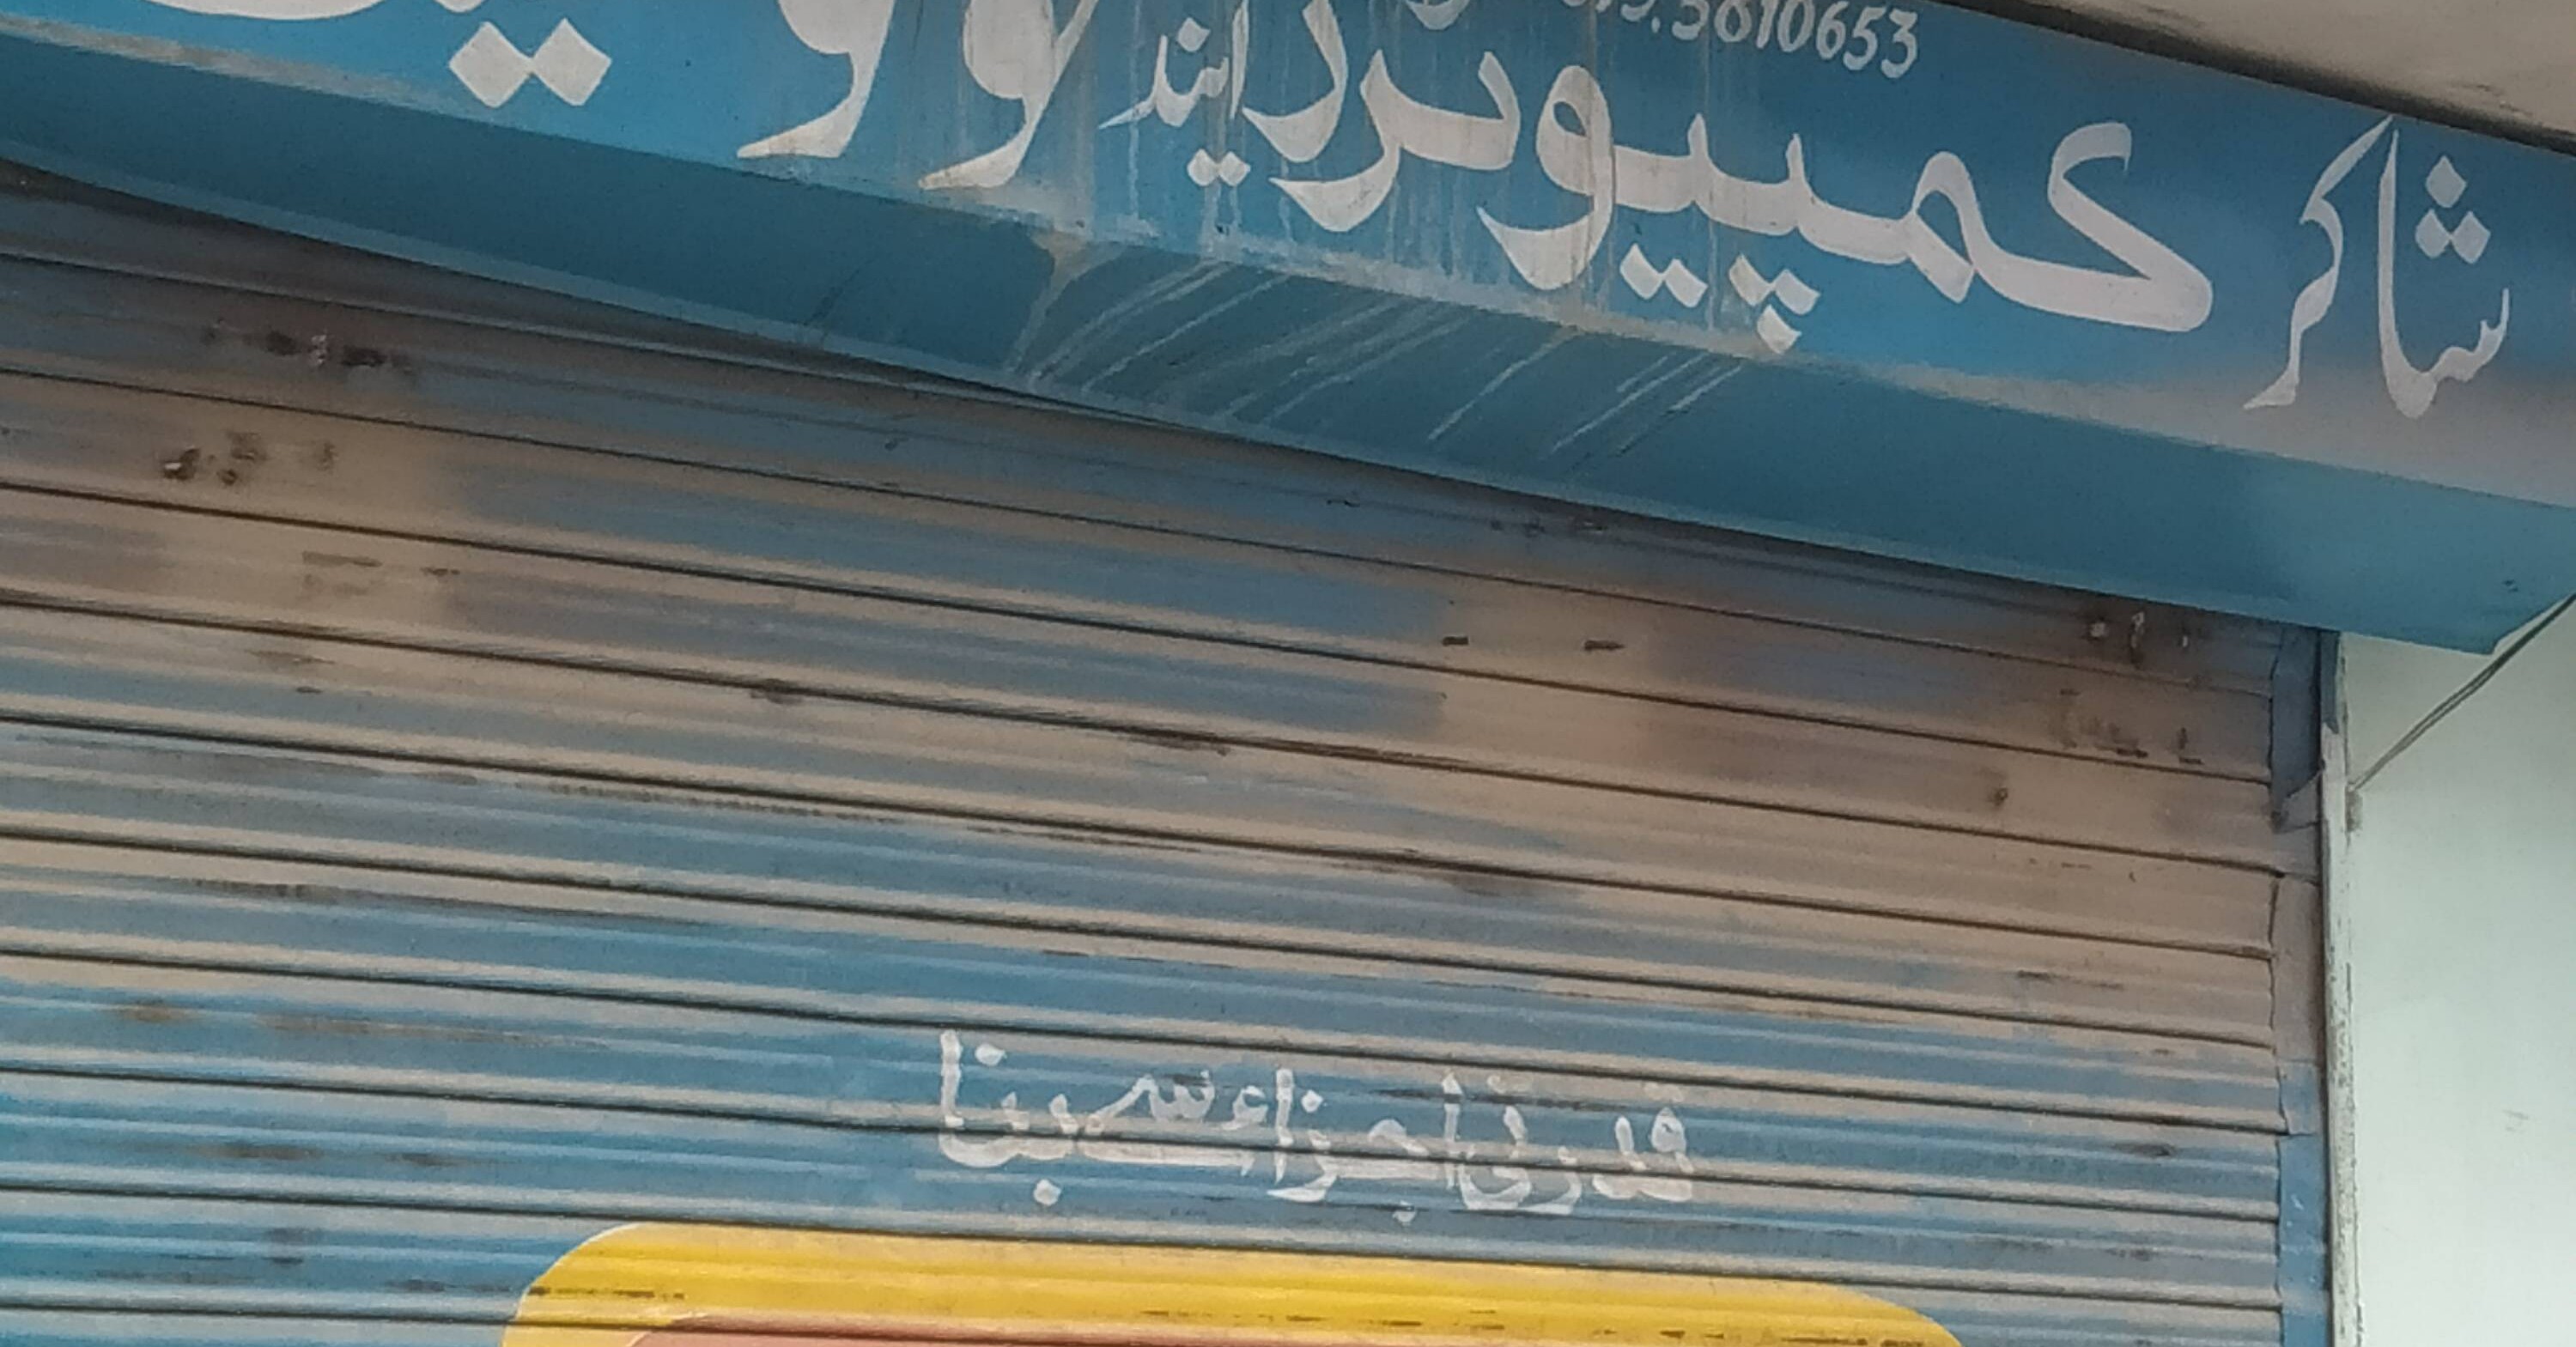 5810653
شاکر کمپیوٹرز اینڈ
قدرتی اجزاء سے بنا